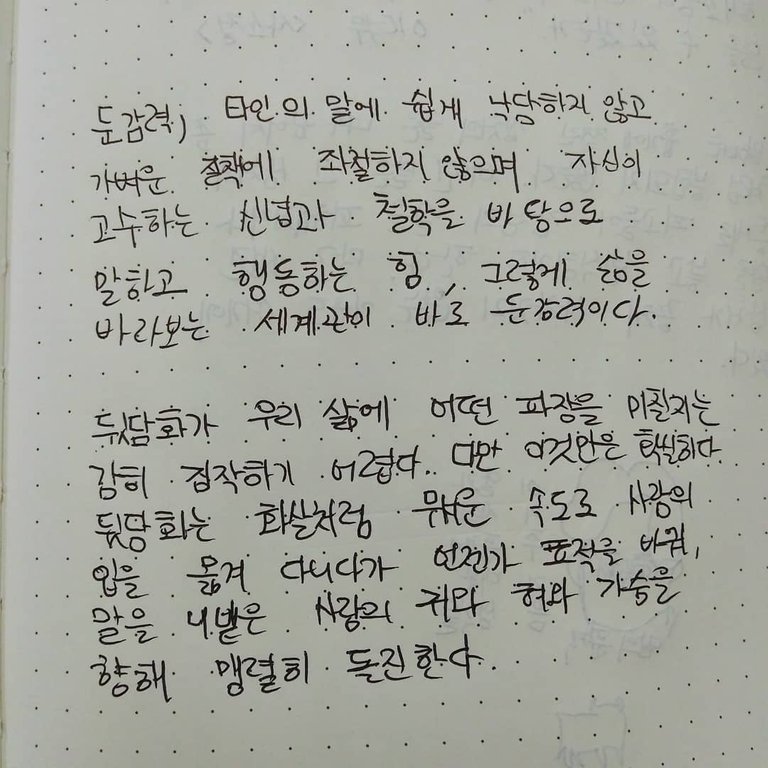 둔감력, 타인의 말에 쉽게 낙담하지 않고
가벼운 질책에 좌절하지 않으며 자신이
고수하는 신념과 철학을 바탕으로
말하고 행동하는 힘, 그렇게 삶을
바라보는 세계관이 바로 둔감력이다.
뒷담화가 우리 삶에 어떤 파장을 미칠지는
감히 짐작하기 어렵다. 다만 이것만은 확실하다
뒷담화는 화살처럼 무서운 속도로 사람의
입을 옮겨 다니다가 언젠가 표적을 바꿔,
말을 내뱉은 사람의 귀와 혀와 가슴을
향해 맹렬히 돌진한다.